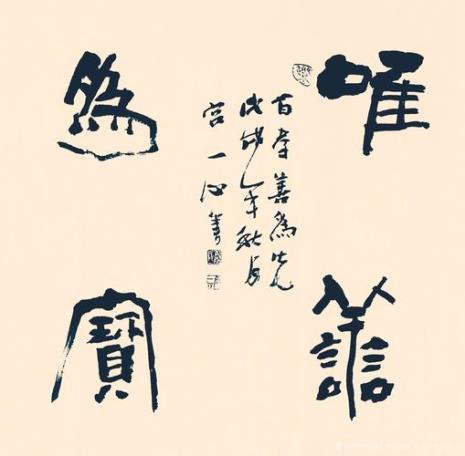 唯譱
百孝善為先
戊戌年秋月
宮一書
為寶